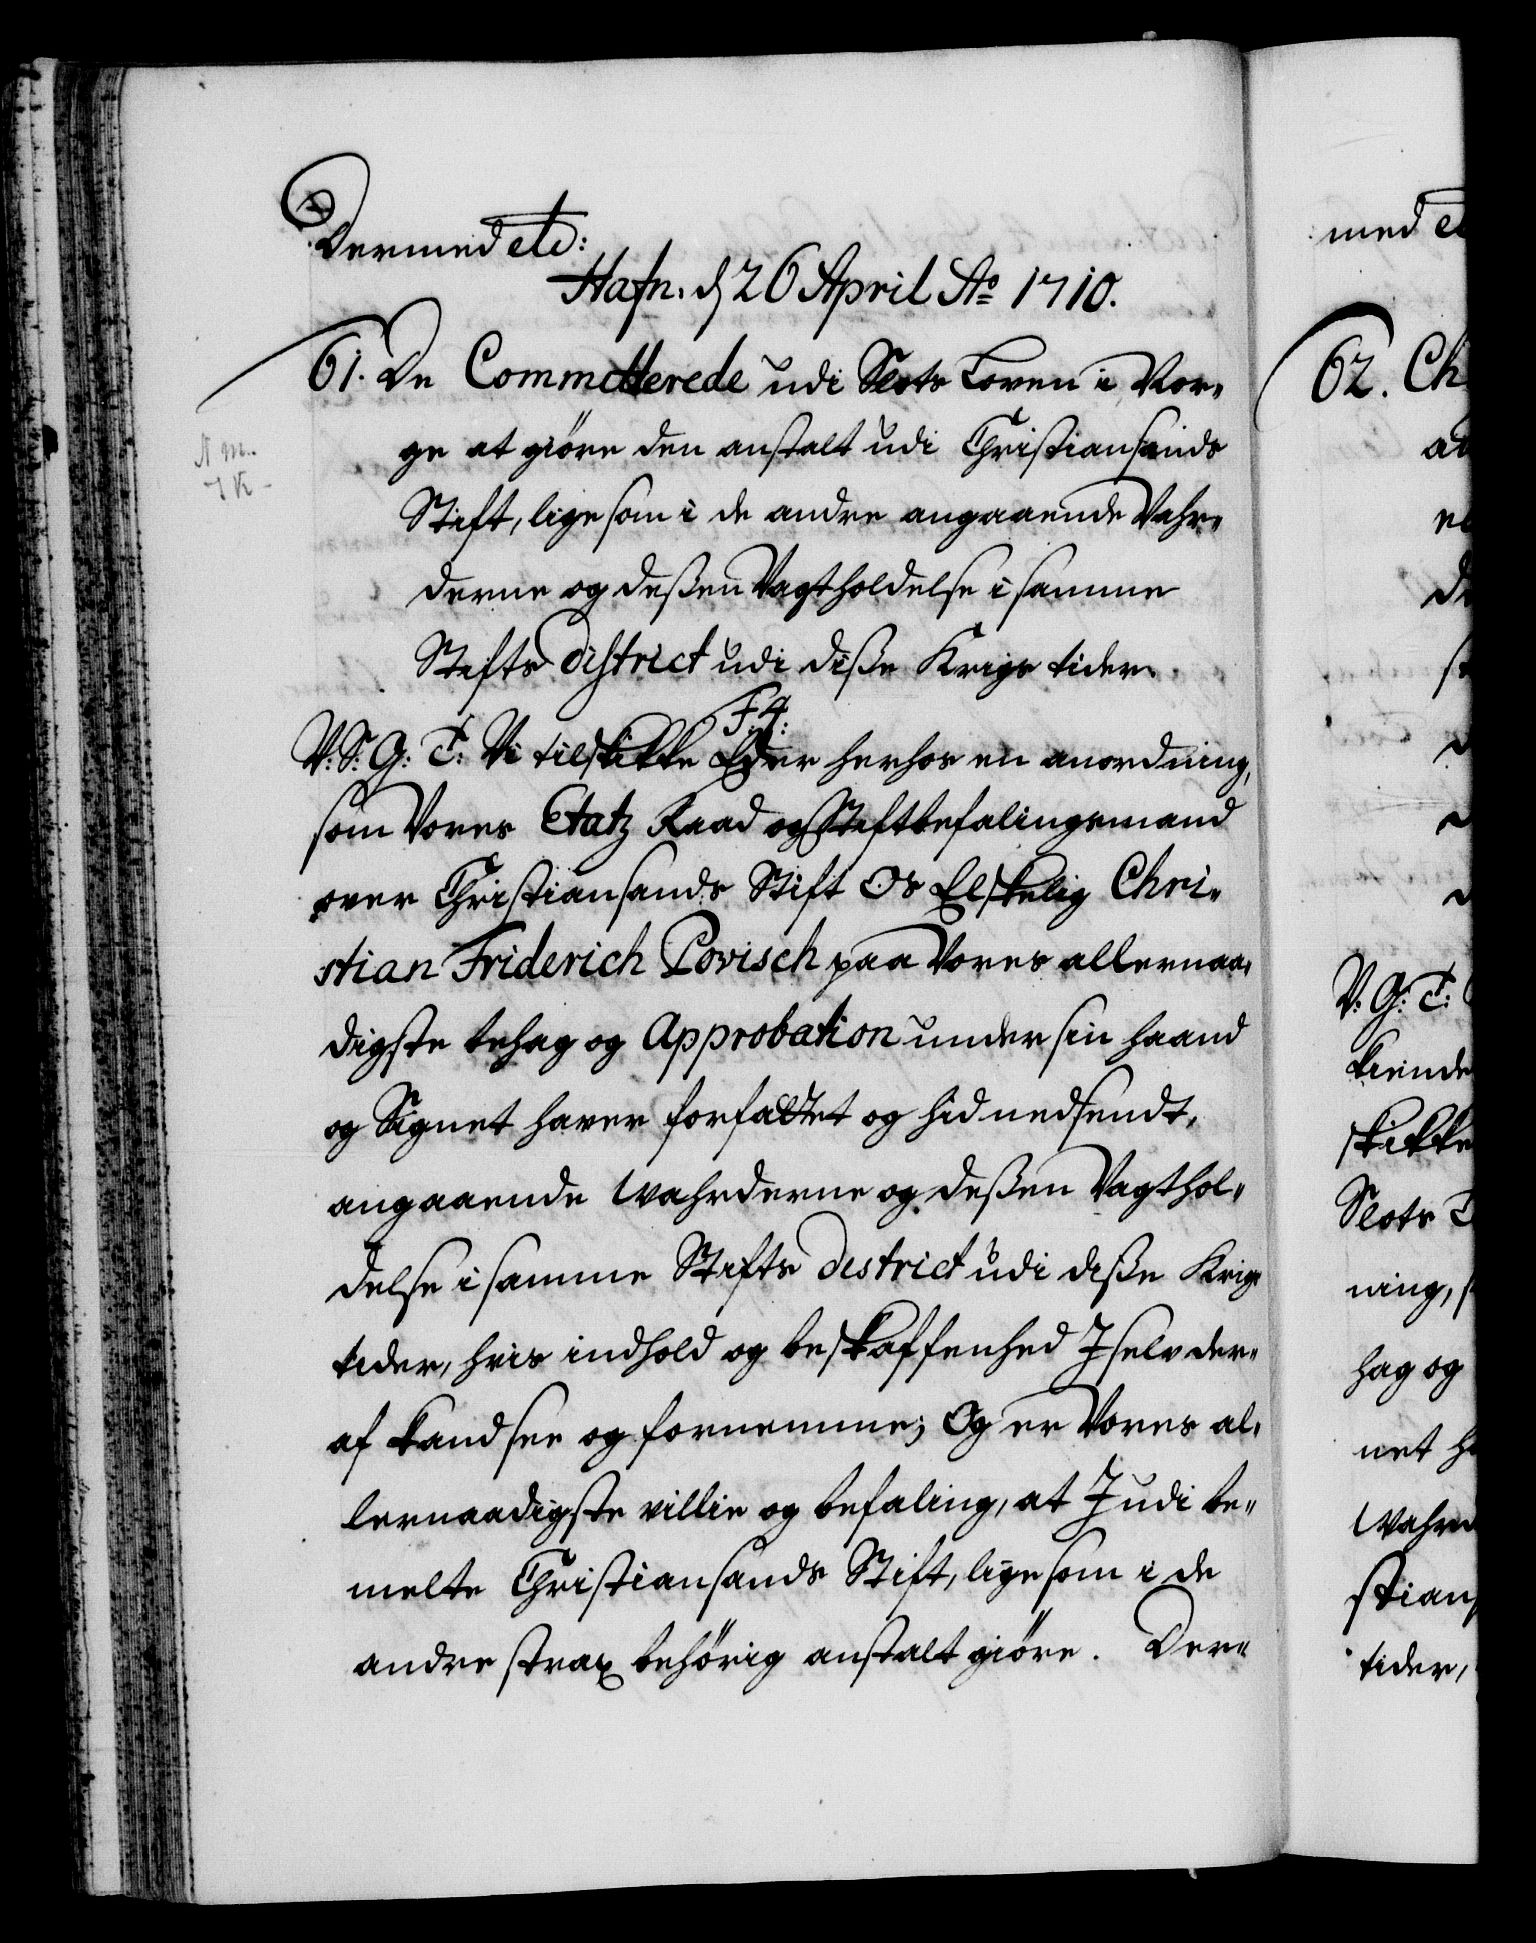 Dermed etc:
Hafn. d 26 April Ao 1710.
61. De Committerede udi Slots Loven i Nor-
ge at giöre den anstalt udi Christiansands
Stift, lige som i de andre angaaende Vahr-
derne og deßen Vagtholdelse i samme
Stifts district udi diße Krigs tider.
F. 4:
V: S: G: T: Vi tilskikke Eder herhos en anordning,
som Vores Etatz Raad og Stiftbefalingsmand
over Christiansands Stift Os Elskelig Chri-
stian Friderich Povisch paa Vores allernaa-
digste behag og Approbation under sin haand
og Signet haver forfattet og hid nedsendt,
angaaende Wahrderne og deßen Vagthol-
delse i samme Stifts destrict udi diße Krigs
tider, hvis indhold og beskaffenhed I selv der-
af kand see og fornemme; Og er Vores al-
lernaadigste villie og befaling, at I udi be-
melte Christiansands Stift, lige som i de
andre strax behörig anstalt giöre. Der-
med
62. Ch
V: G: T:
kiende
skikke
Slots
ning,
hag og
net
tider,